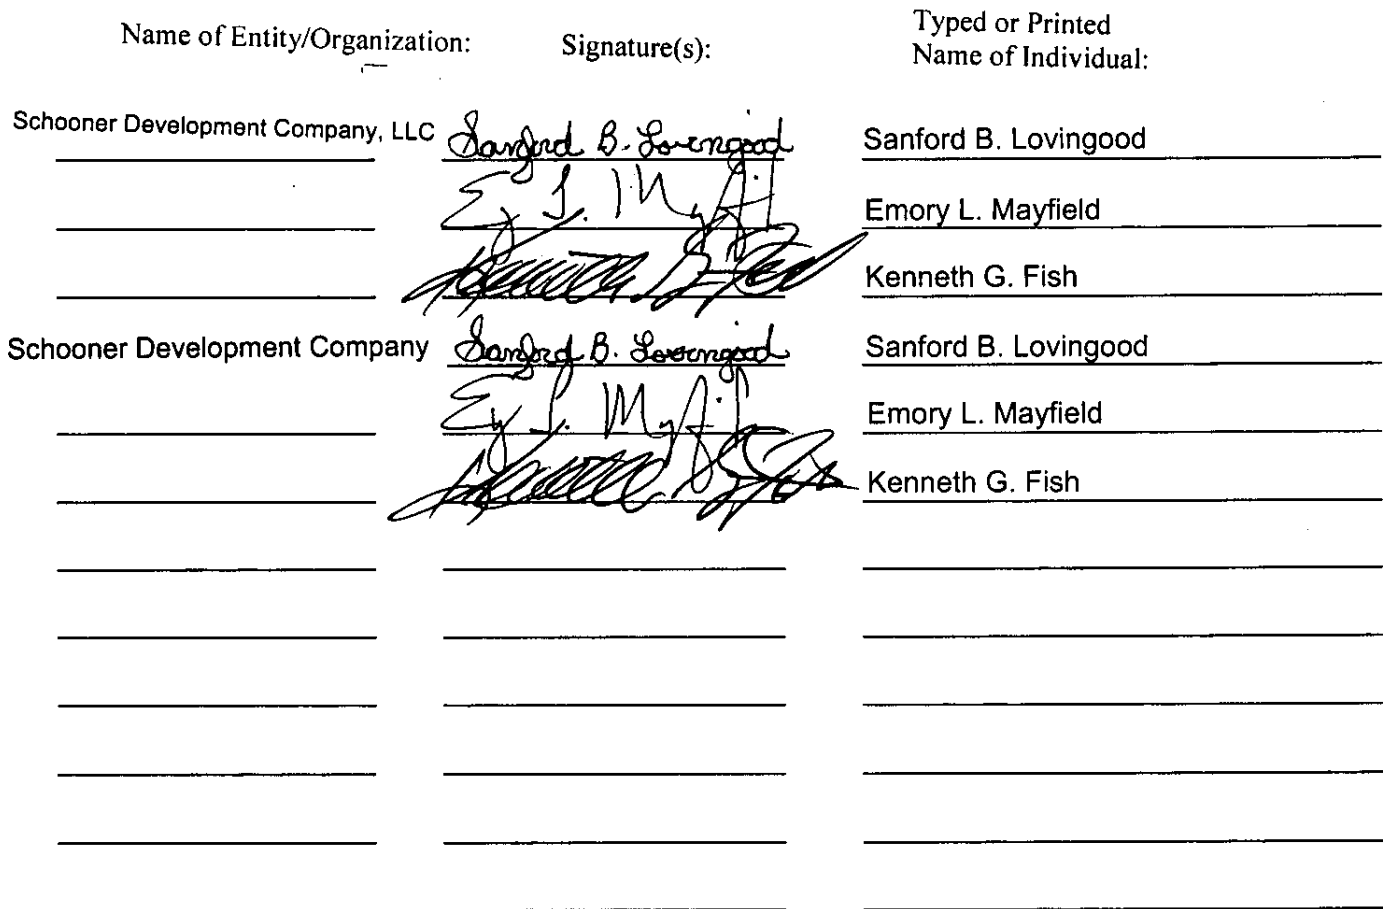 Name of Entity/Organization: Signature(s): Typed or Printed
Name of Individual:
Schooner Development Company, LLC Sanford B. Lovingood Sanford B. Lovingood
Emory L. Mayfield
Kenneth G. Fish
Schooner Development Company Sanford B. Lovingood Sanford B. Lovingood
Emory L. Mayfield
Kenneth G. Fish